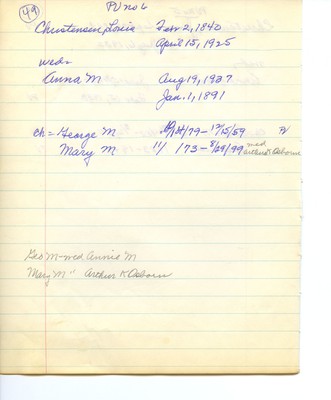 49
PV no 6
Christensen, Louis Febr 2, 1840
April 15, 1925
wed =
Anna M Aug 19, 1837
Jan. 1, 1891
ch = George M /79 - 12/15/59 PV
Mary M 11/ /73 - 8/29/99 wed Arthur K Osborn
Geo M - wed Annie M
Mary M " Arthur K Osborn